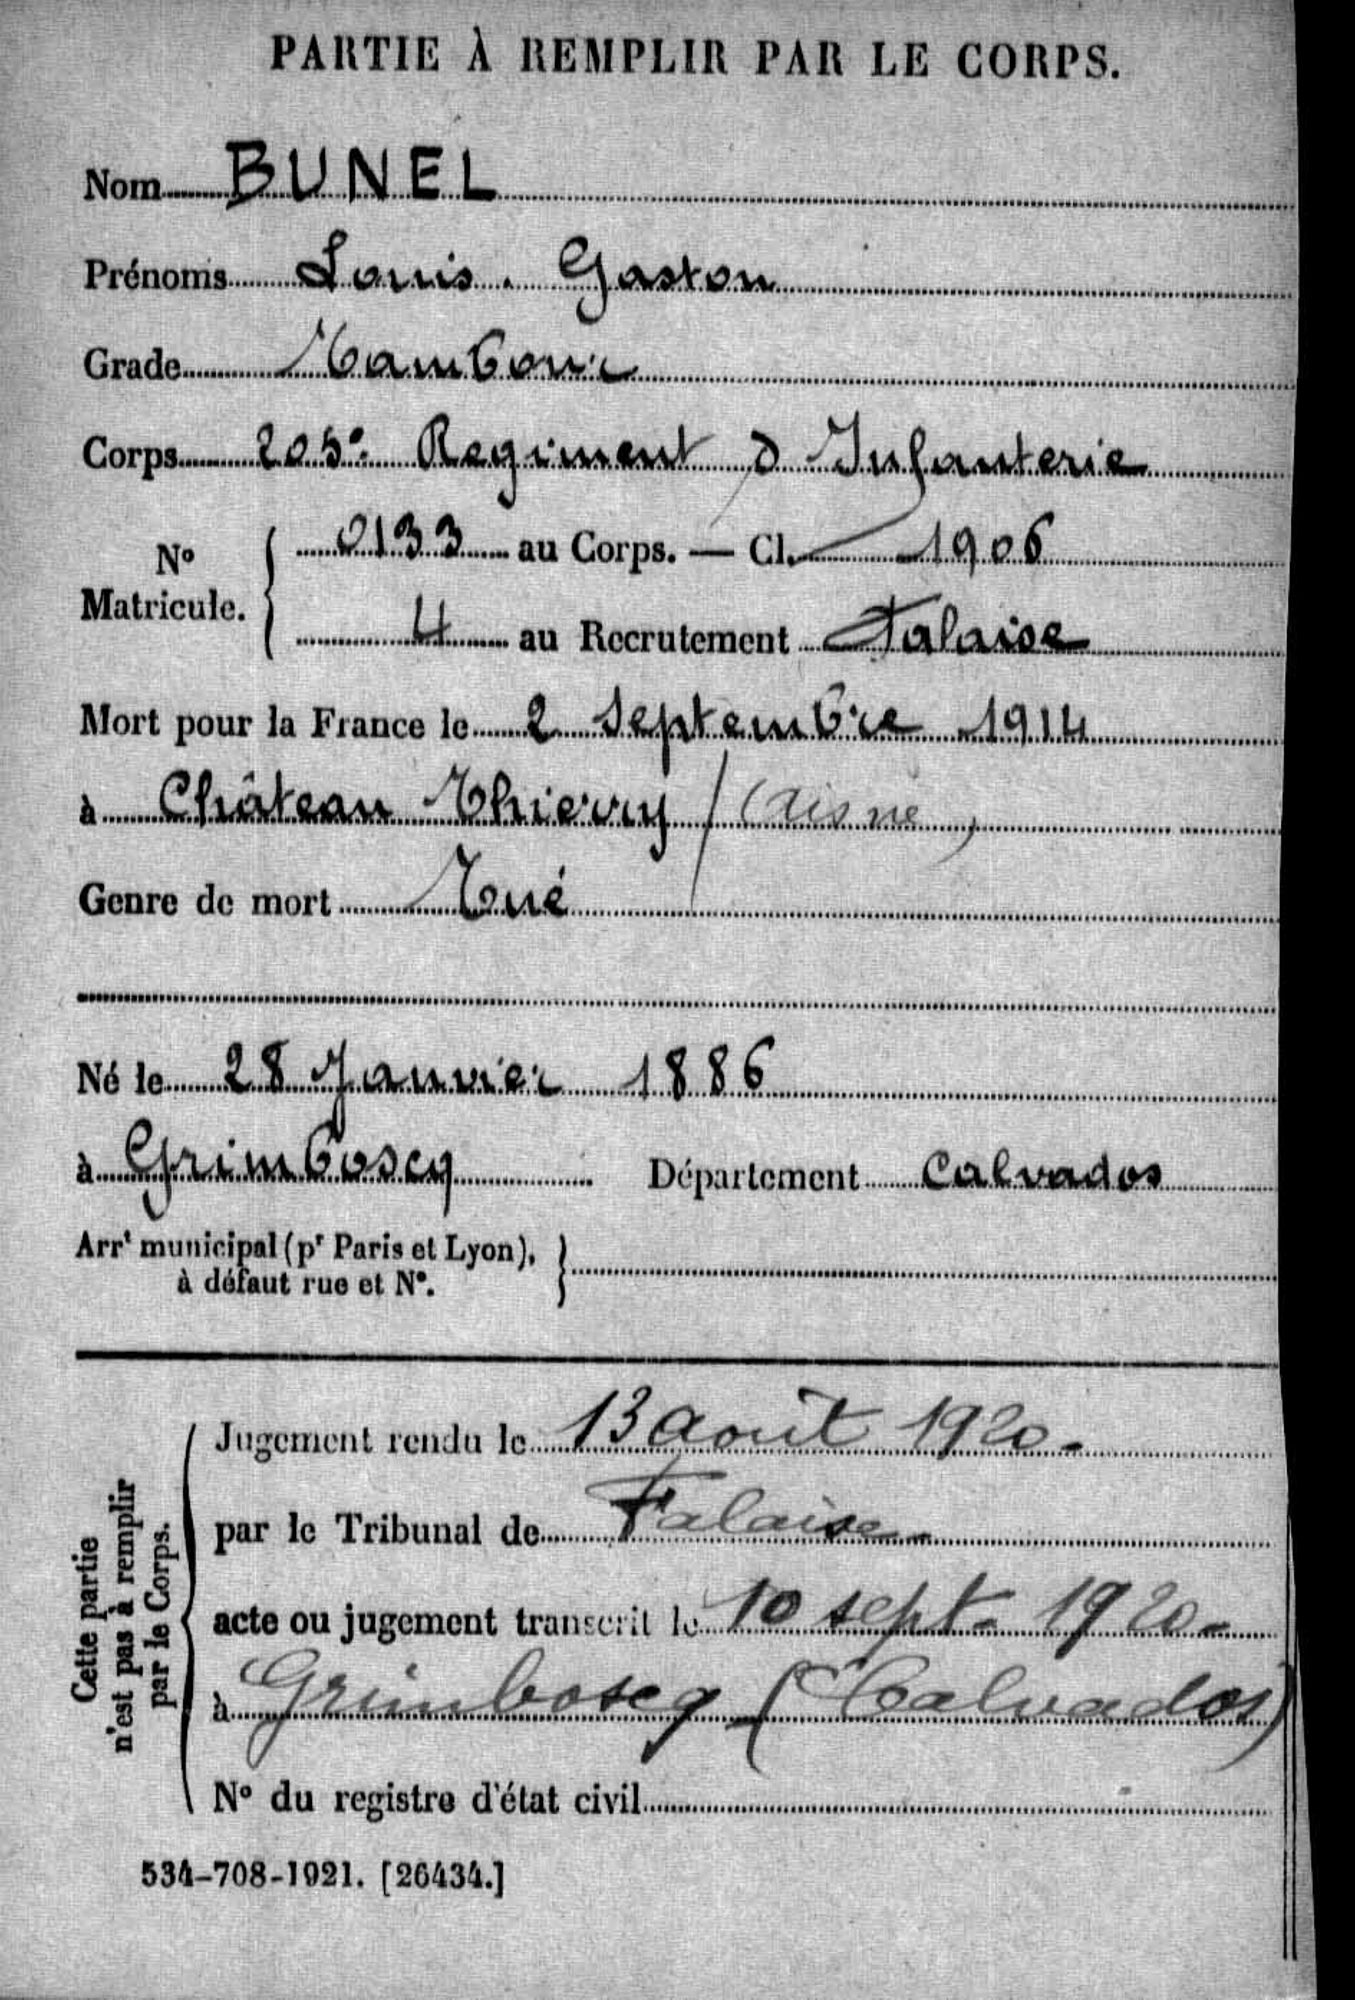 PARTIE À REMPLIR PAR LE CORPS.
Nom BUNEL
Prénoms Louis. Gaston
Grade Tambour
Corps 205e Regiment d Infanterie
N° Matricule.
0133 au Corps. — Cl. 1906
4 au Recrutement Falaise
Mort pour la France le 2 Septembre 1914
à Château Thierry (Aisne)
Genre de mort Tué
Né le 28 Janvier 1886
à Grimboscq Département Calvados
Arrt municipal (pr Paris et Lyon),
à défaut rue et N°.
Cette partie
n'est pas à remplir
par le Corps.
Jugement rendu le 13 août 1920.
par le Tribunal de Falaise.
acte ou jugement transcrit le 10 sept. 1920.
à Grimboscq (Calvados)
N° du registre d'état civil
534-708-1921. [26434.]